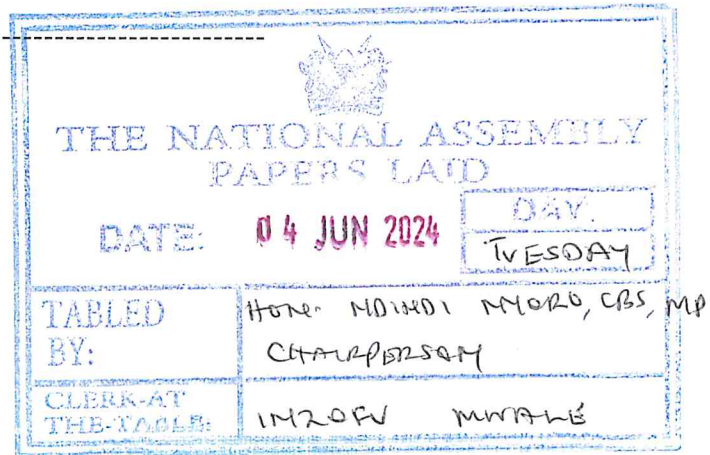 THE NATIONAL ASSEMBLY
PAPERS LAID
DATE: 04 JUN 2024
DAY.
TUESDAY
TABLED BY:
HON. NDINDI NYORO, CBS, MP
CHAIRPERSON
CLERK-AT THE-TABLE:
MWALE